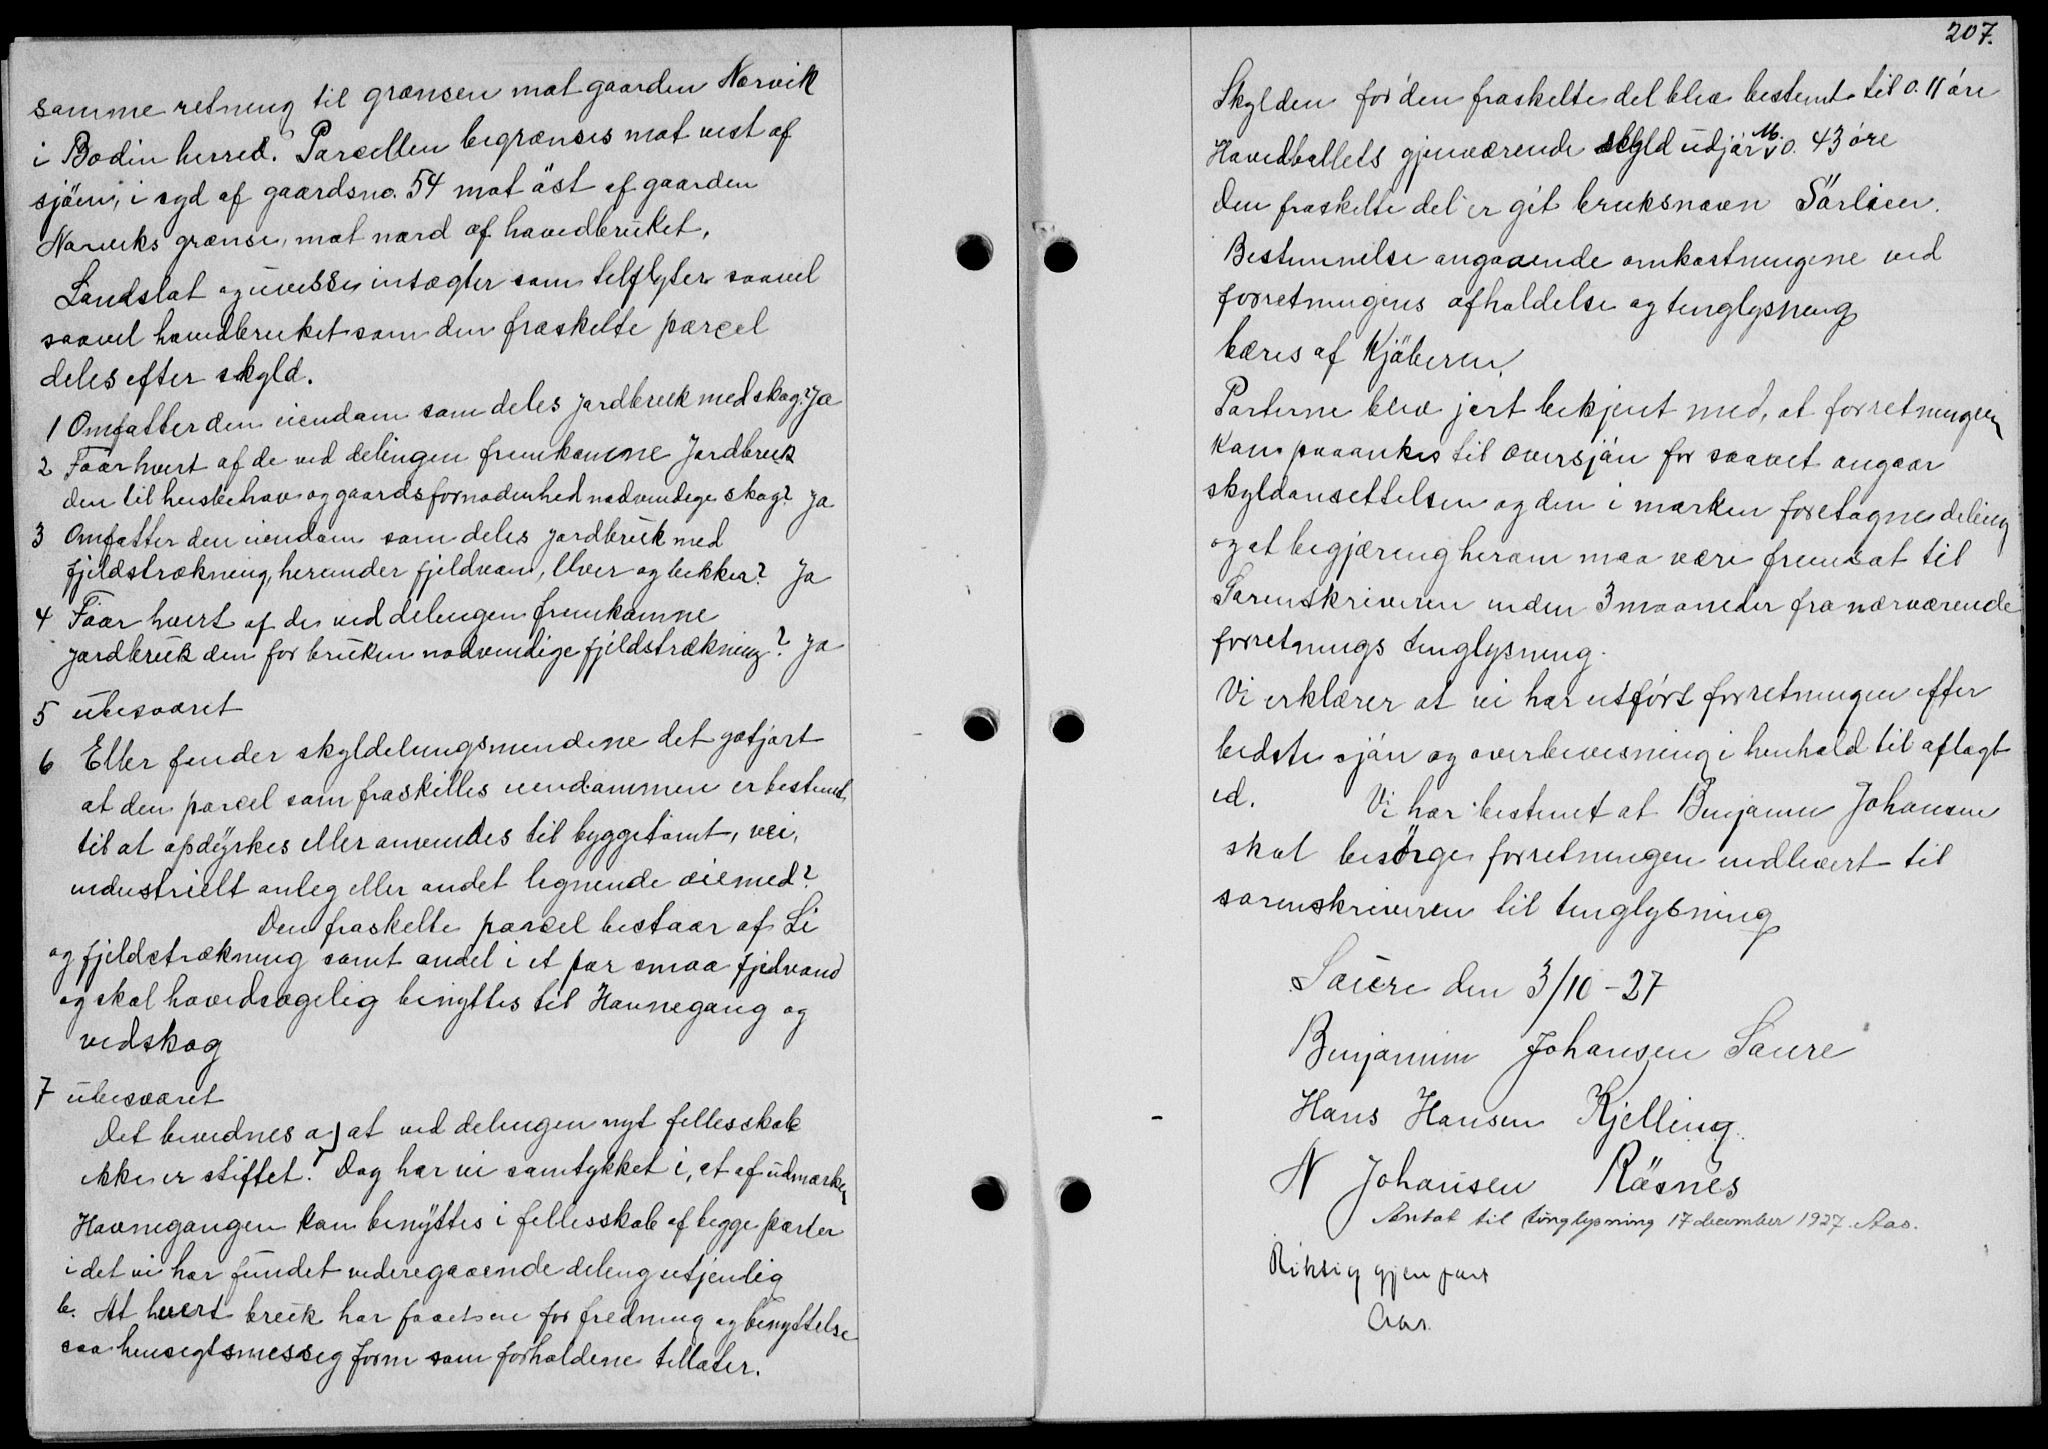 samme retning til grænsen mot gaarden Norvik
i Bodin herred. Parsellen begrænses mot vest af
sjøen, i syd af gaardsno. 54 mot øst af gaarden
Norviks grænse, mot nord af hovedbruket.
Landslot og uvisse intægter som tilflyter saavel
saavel hovedbruket som den fraskelte parcel
deles efter skyld.
1 Omfatter den eiendom som deles jordbruk med skog? Ja
2 Faar hvert af de ved delingen fremkomne Jordbruk
den til husbehov og gaardsfornødenhed nødvendige skog? Ja
3 Omfatter den eiendom som deles jordbruk med
fjeldstrækning, herunder fjeldvan, Elver og bekker? Ja
4 Faar hvert af de ved delingen fremkomne
jordbruk den for bruken nødvendige fjeldstrækning? Ja
5 ubesvaret
6 Eller finder skyldelingsmendene det gotjort
at den parcel som fraskilles eiendommen er bestemt
til at opdyrkes eller anvendes til byggetomt, vei,
industrielt anleg eller andet lignende øiemed?
Den fraskelte parcel bestaar af Li
og fjeldstrækning samt andel i et par smaa fjeldvand
og skal hovedsagelig benyttes til Havnegang og
vedskog
7 ubesvaret
Det bevidnes a) at ved delingen nyt fellesskab
ikke er stiftet. Dog har vi samtykket i, at af udmarken
Havnegangen kan benyttes i fellesskab af begge parter
i det vi har fundet videregaaende deling utjenlig
b. At hvert bruk har faaet en for fredning og benyttelse
saa hensigtsmessig form som forholdene tillater.
207.
Skylden for den fraskelte del blev bestemt til 0.11 øre
Hovedbøllets gjenværende skyld udgjør M. 0. 43 øre
Den fraskelte del er git bruksnavn Sørlien.
Bestemmelse angaaende omkostningene ved
forretningens afholdelse og tinglysning
bæres af Kjøberen.
Parterne blev jort bekjent med, at forretningen
kan paaankes til oversjøn for saavet angaar
skyldansettelsen og den i marken foretagne deling
og at begjæring herom maa være fremsat til
Sorenskriveren inden 3 maaneder fra nærværende
forretnings tinglysning.
Vi erklærer at vi har utført forretningen efter
bedste sjøn og overbevisning i henhold til aflagt
ed. Vi har bestemt at Benjamin Johansen
skal besørge forretningen indlevert til
sorenskriveren til tinglysning
Saure den 3/10-27
Benjamin Johansen Saure
Hans Hansen Kjelling.
N Johansen Røsnes
Antat til tinglysning 17 december 1927. Aas.
Riktig gjenpart
Aas.